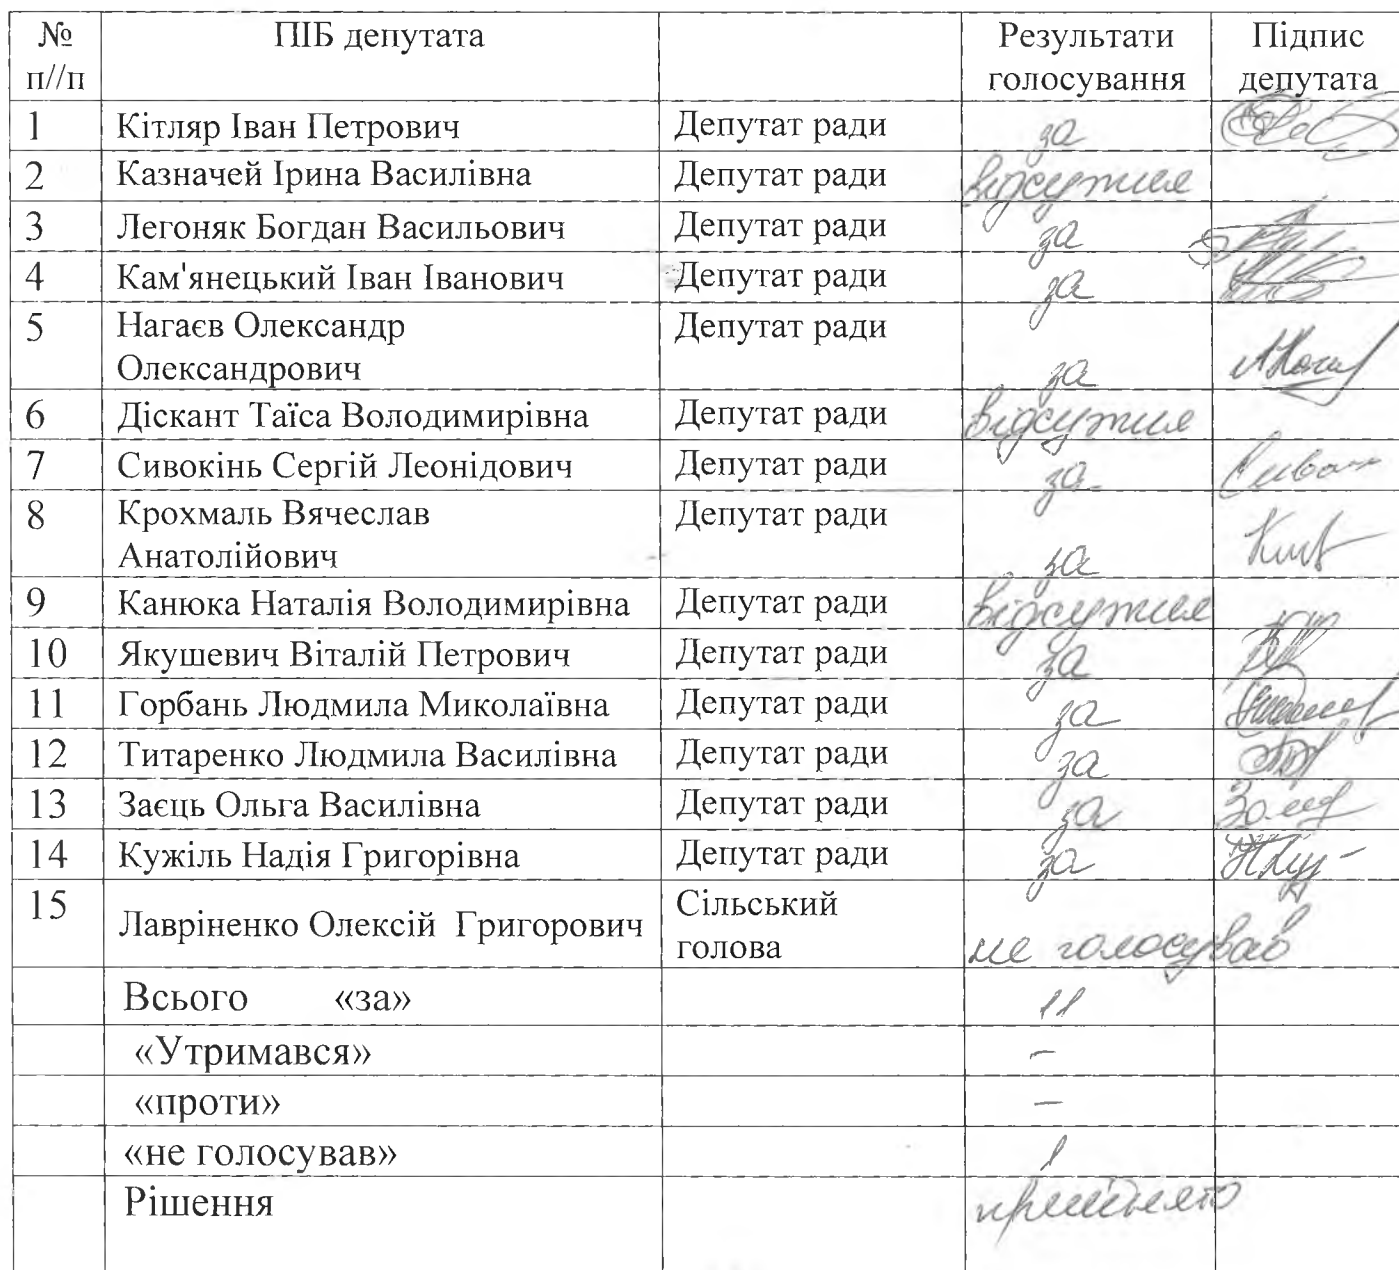 № ПІБ депутата Результати Підпис
п//п голосування депутата
1 Кітляр Іван Петрович Депутат ради за
2 Казначей Ірина Василівна Депутат ради відсутня
3 Легоняк Богдан Васильович Депутат ради за
4 Кам'янецький Іван Іванович Депутат ради за
5 Нагаєв Олександр Депутат ради
Олександрович за
6 Діскант Таїса Володимирівна Депутат ради відсутня
7 Сивокінь Сергій Леонідович Депутат ради за
8 Крохмаль Вячеслав Депутат ради
Анатолійович за
9 Канюка Наталія Володимирівна Депутат ради відсутня
10 Якушевич Віталій Петрович Депутат ради за
11 Горбань Людмила Миколаївна Депутат ради за
12 Титаренко Людмила Василівна Депутат ради за
13 Заєць Ольга Василівна Депутат ради за
14 Кужіль Надія Григорівна Депутат ради за
15 Лавріненко Олексій Григорович Сільський
голова не голосував
Всього «за» 11
«Утримався» –
«проти» –
«не голосував» 1
Рішення прийнято